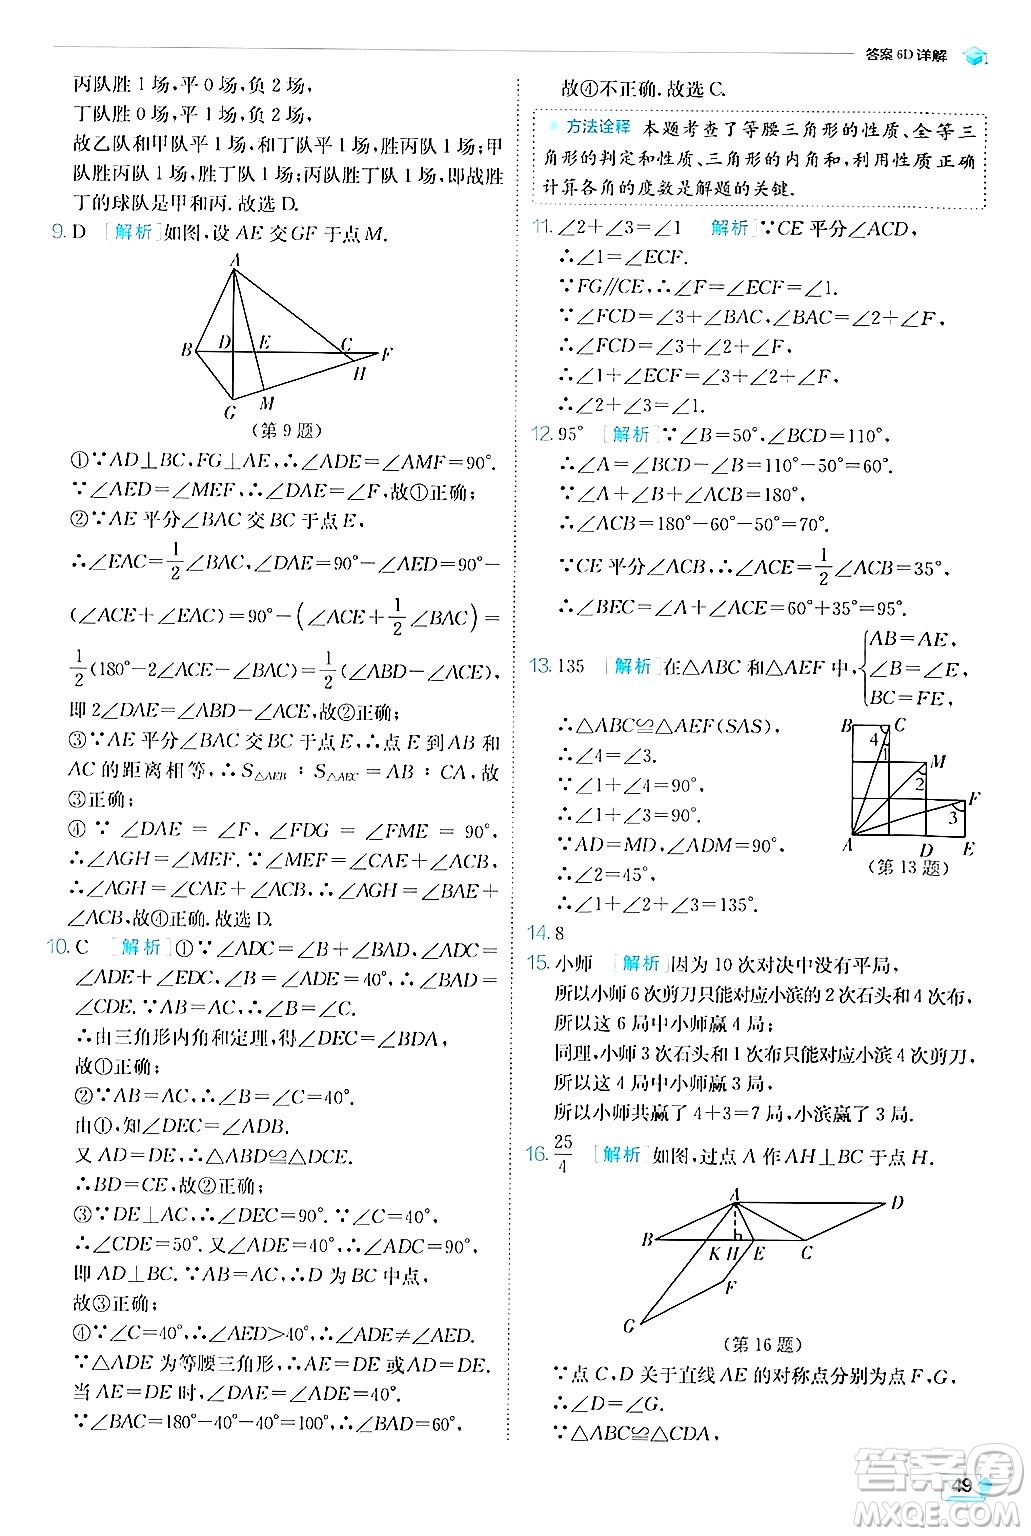 答案 6D 详解
丙队胜 1 场,平 0 场,负 2 场,
丁队胜 0 场,平 1 场,负 2 场,
故乙队和甲队平 1 场,和丁队平 1 场,胜丙队 1 场;甲
队胜丙队 1 场,胜丁队 1 场;丙队胜丁队 1 场,即战胜
丁的球队是甲和丙. 故选 D.
9. D [解析]如图,设 AE 交 GF 于点 M.
A
B D E C F
H
G M
(第 9 题)
①∵AD⊥BC,FG⊥AE,∴∠ADE=∠AMF=90°.
∵∠AED=∠MEF,∴∠DAE=∠F,故①正确;
②∵AE 平分∠BAC 交 BC 于点 E,
∴∠EAC=1/2∠BAC,∠DAE=90°-∠AED=90°-
(∠ACE+∠EAC)=90°-(∠ACE+1/2∠BAC)=
1/2(180°-2∠ACE-∠BAC)=1/2(∠ABD-∠ACE),
即 2∠DAE=∠ABD-∠ACE,故②正确;
③∵AE 平分∠BAC 交 BC 于点 E,∴点 E 到 AB 和
AC 的距离相等,∴S△AEB∶S△AEC=AB∶CA,故
③正确;
④∵∠DAE=∠F,∠FDG=∠FME=90°,
∴∠AGH=∠MEF. ∵∠MEF=∠CAE+∠ACB,
∴∠AGH=∠CAE+∠ACB. ∴∠AGH=∠BAE+
∠ACB. 故④正确. 故选 D.
10. C [解析]①∵∠ADC=∠B+∠BAD=
∠ADE+∠EDC,∠ADE=40°,∴∠BAD=
∠CDE. ∵AB=AC,∴∠B=∠C=40°.
∴由三角形内角和定理,得∠DEC=∠BDA,
故①正确;
②∵AB=AC,∴∠B=∠C=40°.
由①,知∠DEC=∠ADB.
又 AD=DE,∴△ABD≌△DCE.
∴BD=CE,故②正确;
③∵DE⊥AC,∴∠DEC=90°. ∵∠C=40°,
∴∠CDE=50°. 又∠ADE=40°,∴∠ADC=90°,
即 AD⊥BC. ∵AB=AC,∴D 为 BC 中点,
故③正确;
④∵∠C=40°,∴∠AED>40°,∴∠ADE≠∠AED.
∵△ADE 为等腰三角形,∴AE=DE 或AD=DE.
当 AE=DE 时,∠DAE=∠ADE=40°,
∵∠BAC=180°-40°-40°=100°,∴∠BAD=60°,
故④不正确. 故选 C.
方法诠释 本题考查了等腰三角形的性质、全等三
角形的判定和性质、三角形的内角和,利用性质正确
计算各角的度数是解题的关键.
11. ∠2+∠3=∠1 [解析]∵CE 平分∠ACD,
∴∠1=∠ECF.
∵FG∥CE,∴∠F=∠ECF=∠1.
∵∠FCD=∠3+∠BAC,∠BAC=∠2+∠F,
∴∠FCD=∠3+∠2+∠F.
∴∠1+∠ECF=∠3+∠2+∠F.
∴∠2+∠3=∠1.
12. 95° [解析]∵∠B=50°,∠BCD=110°,
∴∠A=∠BCD-∠B=110°-50°=60°.
∵∠A+∠B+∠ACB=180°,
∴∠ACB=180°-60°-50°=70°.
∵CE 平分∠ACB,∴∠ACE=1/2∠ACB=35°,
∴∠BEC=∠A+∠ACE=60°+35°=95°.
13. 135 [解析]在△ABC 和△AEF 中,{AB=AE, ∠B=∠E, BC=FE,
∴△ABC≌△AEF(SAS).
∴∠4=∠3.
∵∠1+∠4=90°,
∴∠1+∠3=90°.
∵AD=MD,∠ADM=90°,
∴∠2=45°,
∴∠1+∠2+∠3=135°.
B C
4
1
M
2
F
3
A D E
(第 13 题)
14. 8
15. 小师 [解析]因为 10 次对决中没有平局,
所以小师 6 次剪刀只能对应小滨的 2 次石头和 4 次布,
所以这 6 局中小师赢 4 局;
同理,小师 3 次石头和 1 次布只能对应小滨 4 次剪刀,
所以这 4 局中小师赢 3 局,
所以小师共赢了 4+3=7 局,小滨赢了 3 局.
16. 25/4 [解析]如图,过点 A 作 AH⊥BC 于点 H.
A D
B K H E C
F
G
(第 16 题)
∵点 C,D 关于直线 AE 的对称点分别为点 F,G,
∴∠D=∠G.
∵△ABC≌△CDA,
49
答案圈
MXQE.COM